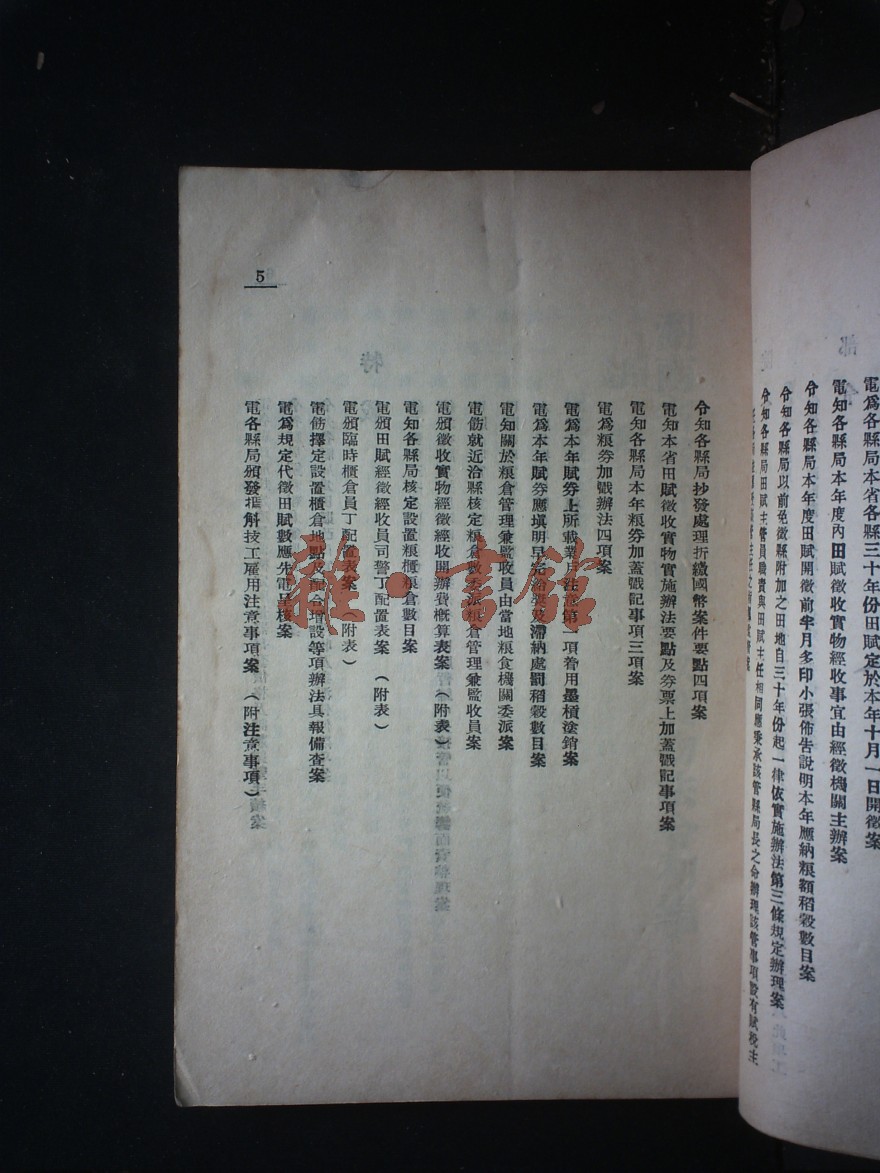 電爲各縣局本省各縣三十年份田賦定於本年十月一日開徵案
電知各縣局本年度內田賦徵收實物經收事宜由經徵機關主辦案
令知各縣局本年度田賦開徵前半月多印小張佈告說明本年應納粮額稻穀數目案
令知各縣局以前免徵縣附加之田地自三十年份起一律依實施辦法第三條規定辦理案
令知各縣局田賦主管員職責與田賦主任相同應秉承該管縣局長之命辦理該管事項設有賦稅主
令知各縣局抄發處理折繳國幣案件要點四項案
電知本省田賦徵收實物實施辦法要點及券票上加蓋戳記事項案
電知各縣局本年粮券加蓋戳記事項三項案
電爲粮券加戳辦法四項案
電爲本年賦券上所載業戶注意第一項着用墨槓塗銷案
電爲本年賦券應填明早完給獎及滯納處罰稻穀數目案
電知關於粮倉管理兼監收員由當地粮食機關委派案
電飭就近洽縣核定粮倉數委派粮倉管理兼監收員案
電頒徵收實物經徵經收開辦費概算表案(附表)
電知各縣局核定設置粮櫃粮倉數目案
電頒田賦經徵經收員司警丁配置表案(附表)
電頒臨時櫃倉員丁配置表案(附表)
電飭擇定設置櫃倉地點及配合增設等項辦法具報備查案
電爲規定代徵田賦數應先電呈核案
電各縣局頒發搉斛技工雇用注意事項案(附注意事項)
5
雜·書館